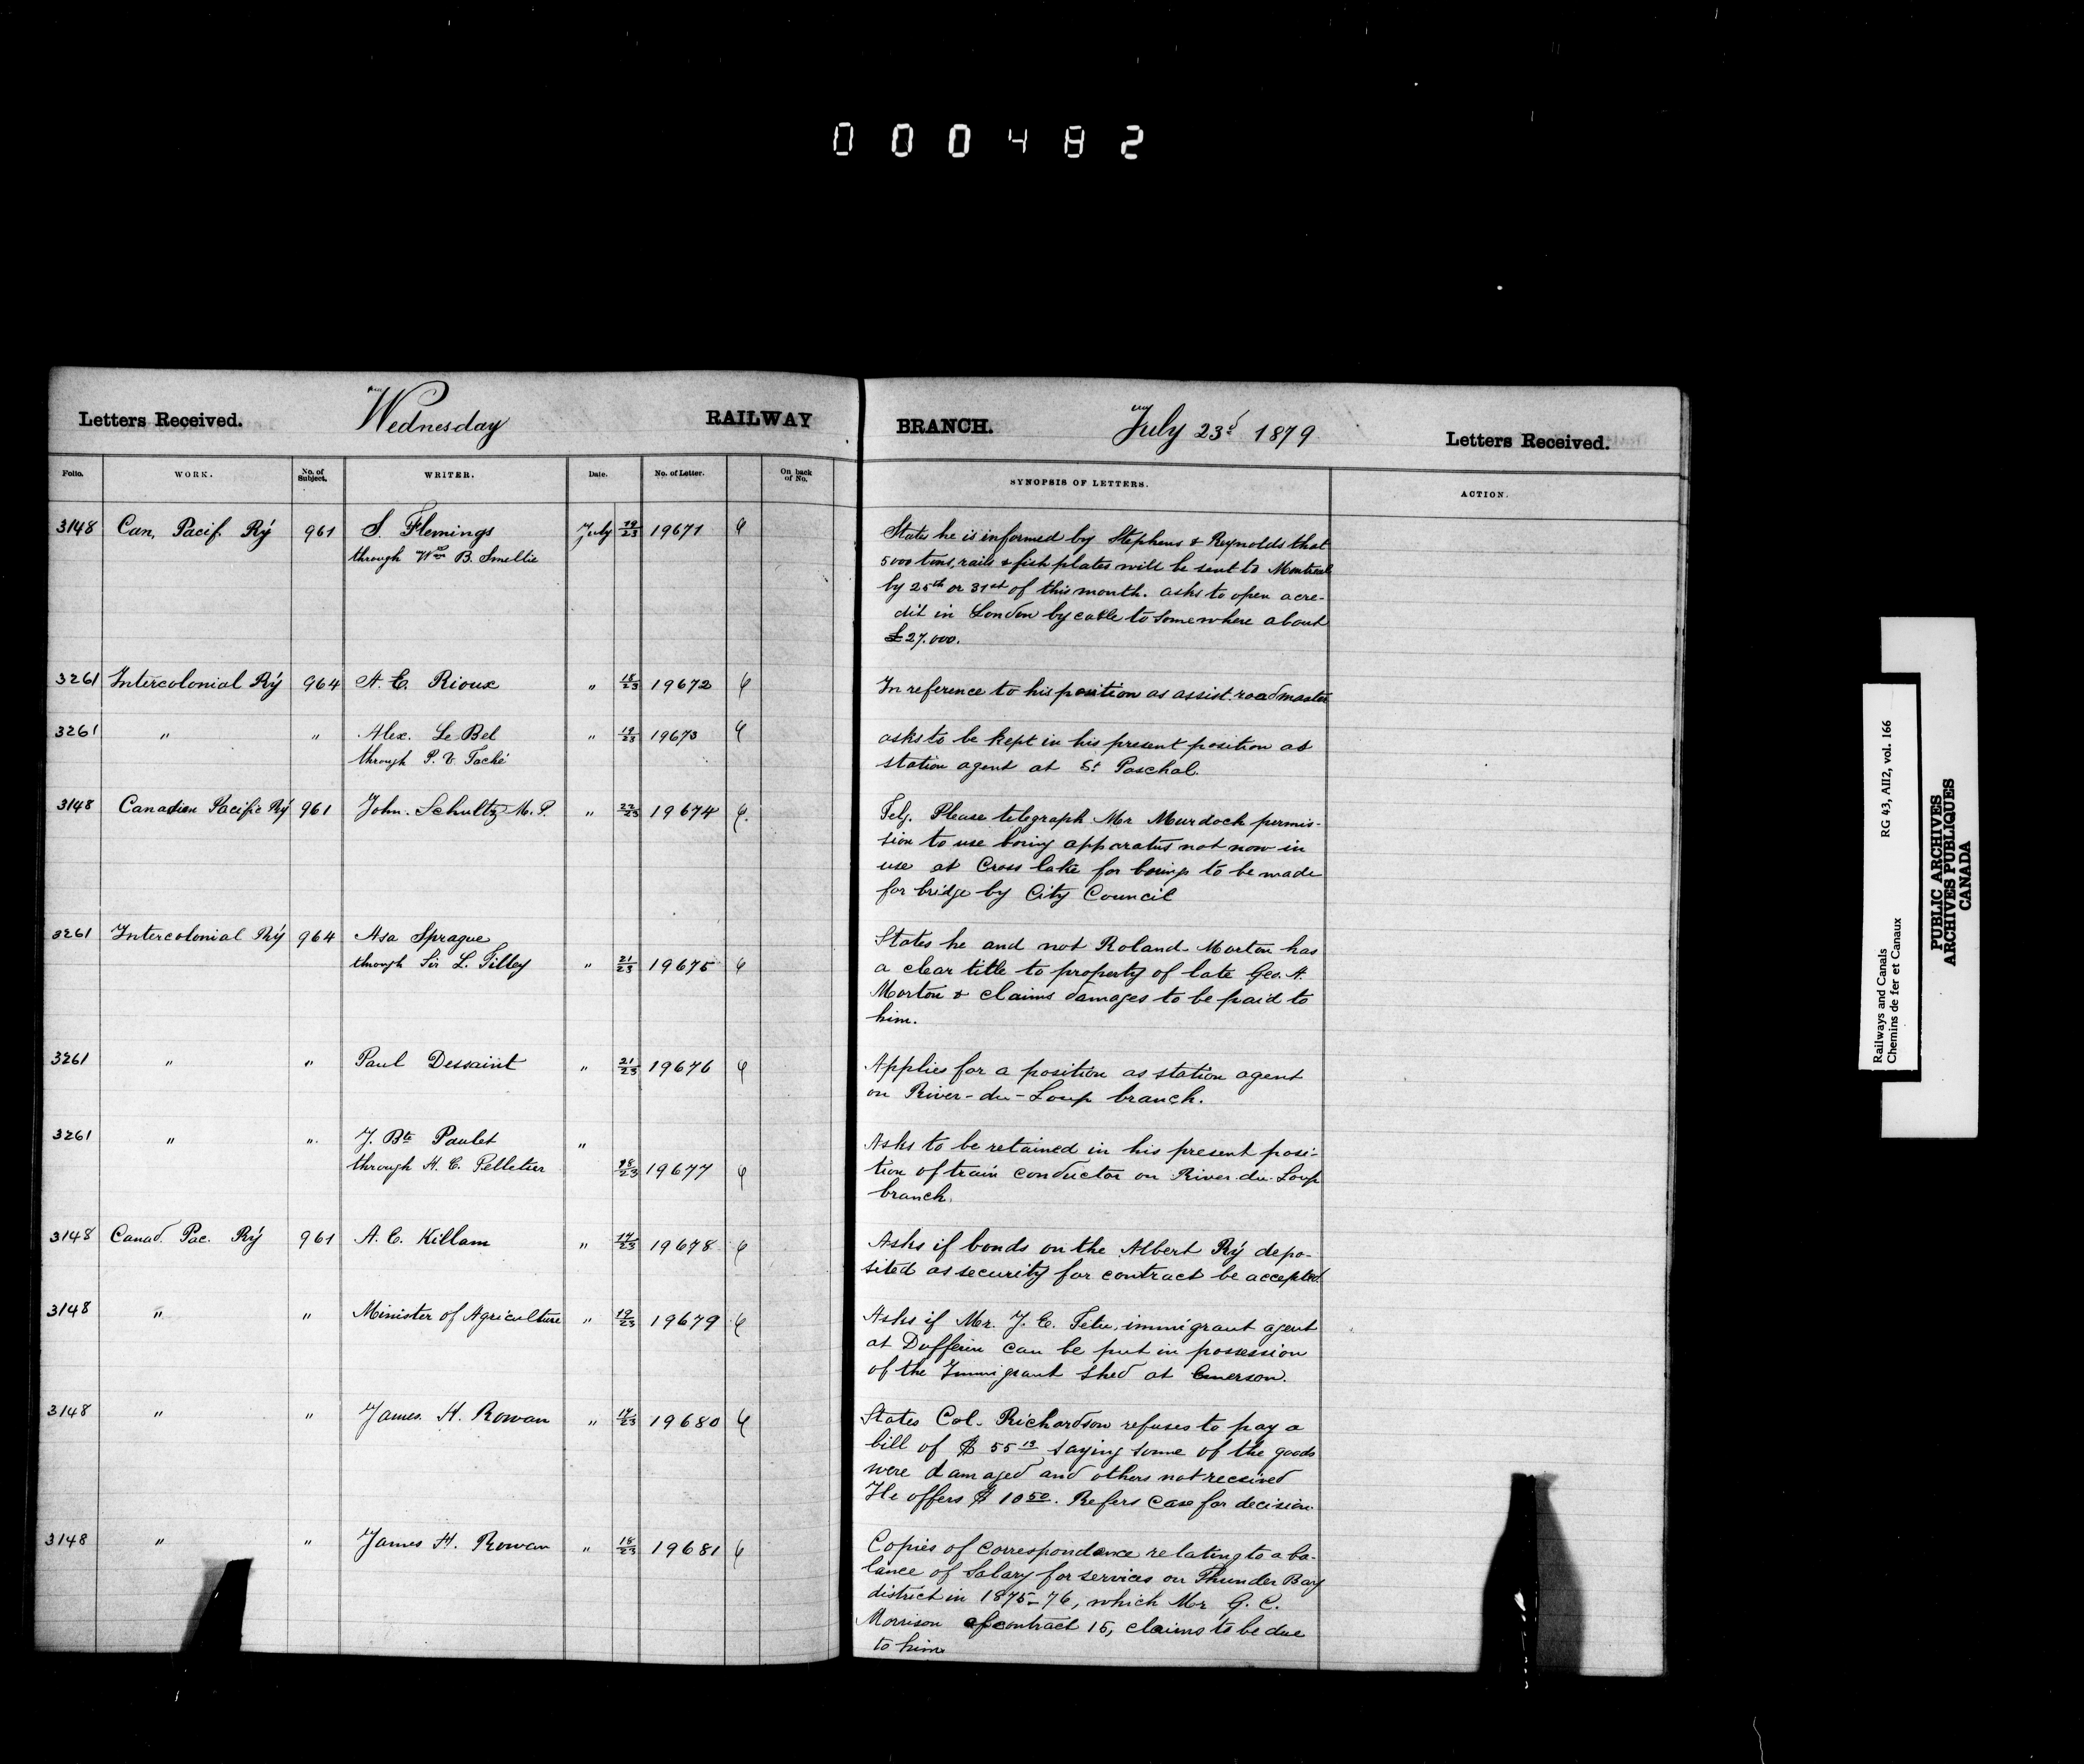 000482
Letters Received. Wednesday RAILWAY BRANCH. July 23d 1879 Letters Received.
Folio. WORK. No. of Subject. WRITER. Date. No. of Letter. On back of No. SYNOPSIS OF LETTERS. ACTION.
3148 Can. Pacif. Ry 961 S. Flemings July 19/23 19671 States he is informed by Stephens & Reynolds that
through Wm B. Smellie 5000 tons, rails & fish plates will be sent to Montreal
by 25th or 31st of this month. asks to open a cre-
dit in London by cable to somewhere about
£27.000.
3261 Intercolonial Ry 964 A. E. Rioux " 18/23 19672 In reference to his position as assist. roadmaster
3261 " " Alex. Le Bel " 19/23 19673 asks to be kept in his present position as
through P. V. Taché station agent at St Paschal.
3148 Canadian Pacific Ry 961 John. Schultz M.P. " 22/23 19674 Telg. Please telegraph Mr Murdoch permis-
sion to use boring apparatus not now in
use at Cross lake for borings to be made
for bridge by City Council
3261 Intercolonial Ry 964 Asa Sprague States he and not Roland Morton has
through Sir L. Tilley " 21/23 19675 a clear title to property of late Geo. A.
Morton & claims damages to be paid to
him.
3261 " " Paul Dessaint " 21/23 19676 Applies for a position as station agent
on River-du-Loup branch.
3261 " " J. Bte Paulet " Asks to be retained in his present posi-
through H. C. Pelletier 18/23 19677 tion of train conductor on River-du-Loup
branch.
3148 Canad. Pac. Ry 961 A. C. Killam " 17/23 19678 Asks if bonds on the Albert Ry depo-
sited as security for contract be accepted.
3148 " " Minister of Agriculture " 19/23 19679 Asks if Mr. J. E. Tetu, immigrant agent
at Dufferin can be put in possession
of the Immigrant shed at Emerson.
3148 " " James. H. Rowan " 17/23 19680 States Col. Richardson refuses to pay a
bill of $55 13 saying some of the goods
were damaged and others not received
He offers $ 10 50. Refers case for decision.
3148 " " James H. Rowan " 18/23 19681 Copies of correspondence relating to a ba-
lance of salary for services on Thunder Bay
district in 1875-76, which Mr G. C.
Morrison of contract 15, claims to be due
to him
Railways and Canals RG 43, AII2, vol. 166
Chemins de fer et Canaux
PUBLIC ARCHIVES
ARCHIVES PUBLIQUES
CANADA